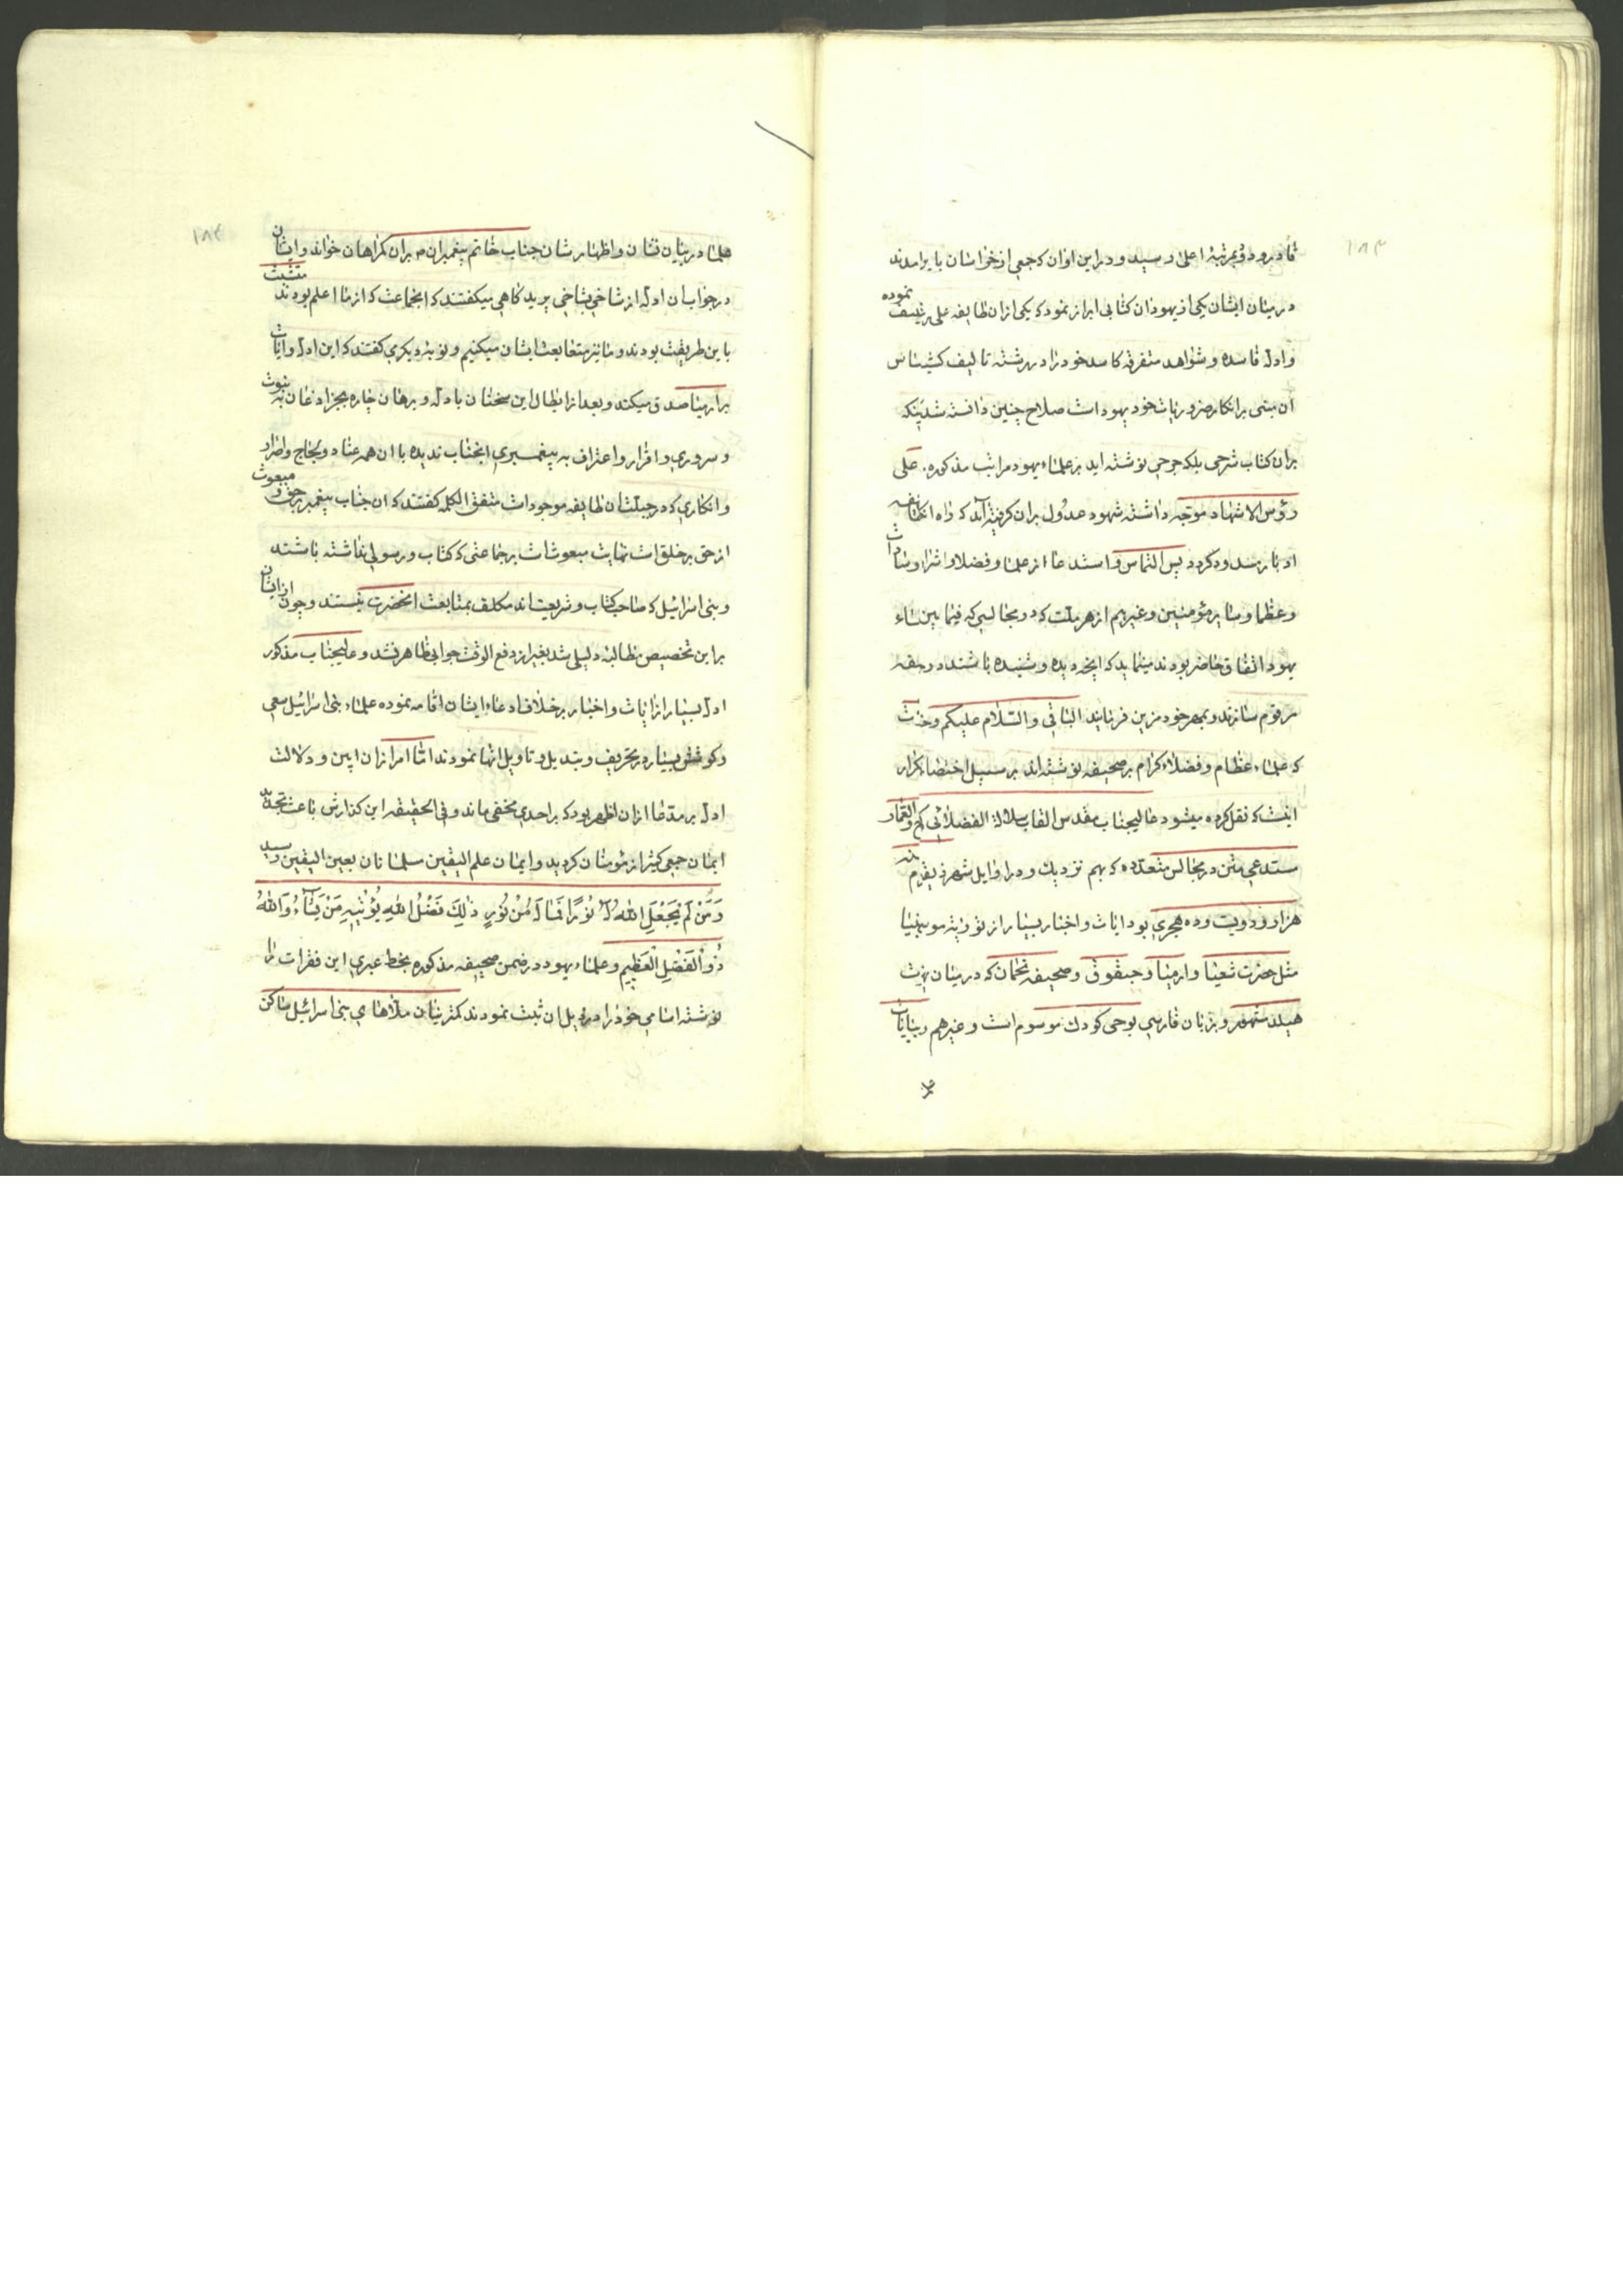 ۱۸۳
قادر بود و بمرتبهٔ اعلی رسید و در این اوان که جمعی از خراسان بایر امدند
در میان ایشان یکی از یهودان کتابی ابراز نمود که یکی از ان طایفه علی تصنیف نموده
و ادلهٔ فاسده و شواهد متفرقه کاسد خود را در رشتهٔ تالیف کشیده اساس
آن مبنی بر انکار ضروریات خود یهود است صلاح چنین دانسته شد اینکه
بر ان کتاب شرحی بلکه جرحی نوشته اید بر علماء یهود مراتب مذکوره علی
رؤس الاشهاد موجه داشته شهود عدول بر ان گرفته اید که راه
ادبار مسدود کردد پس التماس و استدعا از علما و فضلا و اشراف و سادات
و عظما و سایر مؤمنین و غیرهم از هر ملت که در مجالسی که فیما بین علماء
یهود اتفاق حاضر بودند مینماید که انچه دیده و شنیده باشند در صحیفه
مرقوم سازند و بمهر خود مزین فرمایند الباقی والسلام علیکم و رحمت
که علماء عظام و فضلاء کرام بر صحیفه نوشته اند بر سبیل اختصار
اینست که نقل کرده میشود عالیجناب مقدس القاب سلالة الفضلائی
مستدعی متن در مجالس متعدده که بهم نزدیک و در اوایل شهر ذیقعده
هزار و دویست و ده هجری بود ایات و اخبار بسیار از توریة موسی و انبیا
مثل حضرت شعیا و ارمیا و حبقوق و صحیفه نحمان که در میان
هیلد مشهور و بزبان فارسی بوحی کودک موسوم است و غیرهم
۱۸۴
علما در بیان نشان و اظهار شان جناب خاتم پیغمبران م بران کمراهان خواند و ایشان
در جواب ان ادله از شاخی بشاخی پرید کاهی میکفتند که انجماعت که از ما اعلم بودند متشبث
باین طریقت بودند و ما نیز متابعت ایشان میکنیم و نوبهٔ دیکری کفتند که این ادله و ایات
بر ارمیا صدق میکند و بعد از ابطال این سخنان بادله و برهان چاره بجز اذعان به نبوت
و سروری و اقرار و اعتراف به پیغمبری انجناب ندیده با ان همه عناد و لجاج و اصرار
و انکاری که در جبلت ان طایفه موجود است متفق الکلمه کفتند که ان جناب پیغمبر برحق و مبعوث
از حق بر خلق است نهایت مبعوث است بر جماعتی که کتاب و رسولی نداشته باشند
و بنی اسرائیل که صاحب کتاب و شریعت اند مکلف بمتابعت انحضرت نیستند و چون از ایشان
بر این تخصیص مطالبهٔ دلیلی شد بغیر از دفع الوقت جوابی ظاهر نشد و عالیجناب مذکور
ادله بسیار از ایات و اخبار بر خلاف ادعاء ایشان اقامه نموده علماء بنی اسرائیل سعی
و کوشش بسیار در تحریف و تبدیل و تاویل انها نمودند امّا امر از ان ابین و دلالت
ادله بر مدعا از ان اظهر بود که بر احدی مخفی ماند و فی الحقیقه این کذارش باعث تجدید
ایمان جمعی کثیر از مؤمنان کردید و ایمان علم الیقین مسلمانان بعین الیقین رسید
وَمَنْ لَمْ یَجْعَلِ اللّٰهُ لَهُ نُورًا فَمَا لَهُ مِنْ نُورٍ ذٰلِكَ فَضْلُ اللّٰهِ یُؤْتِیهِ مَنْ یَشَآءُ وَاللّٰهُ
ذُو الْفَضْلِ الْعَظِیمِ و علماء یهود در ضمن صحیفه مذکوره بخط عبری این فقرات را
نوشته اسامی خود را در ذیل ان ثبت نمودند کمترینان ملاهای بنی اسرائیل ساکن